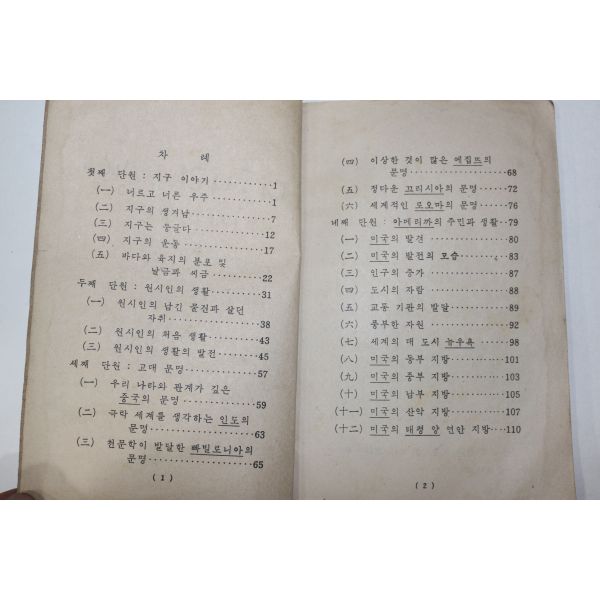 차 례
첫째 단원 : 지구 이야기 ············1
(一) 너르고 너른 우주 ·············1
(二) 지구의 생겨남 ················7
(三) 지구는 둥글다 ···············12
(四) 지구의 운동 ·················17
(五) 바다와 육지의 분포 및
날금과 씨금 ···············22
두째 단원 : 원시인의 생활 ·········31
(一) 원시인의 남긴 물건과 살던
자취 ·····················38
(二) 원시인의 처음 생활 ···········43
(三) 원시인의 생활의 발전 ·········45
세째 단원 : 고대 문명 ············57
(一) 우리 나라와 관계가 깊은
중국의 문명 ···············59
(二) 극락 세계를 생각하는 인도의
문명 ·····················63
(三) 천문학이 발달한 빠빌로니아의
문명 ·····················65
( 1 )
(四) 이상한 것이 많은 에집트의
문명 ·····················68
(五) 정다운 끄리시아의 문명 ······72
(六) 세계적인 로오마의 문명 ······76
네째 단원 : 아메리까의 주민과 생활 ·79
(一) 미국의 발견 ················80
(二) 미국의 발전의 모습 ··········83
(三) 인구의 증가 ················87
(四) 도시의 자람 ················88
(五) 교통 기관의 발달 ············89
(六) 풍부한 자원 ················92
(七) 세계의 대 도시 늬우욕 ·······98
(八) 미국의 동부 지방 ···········101
(九) 미국의 중부 지방 ···········105
(十) 미국의 남부 지방 ···········105
(十一) 미국의 산악 지방 ·········107
(十二) 미국의 태평 양 연안 지방 ····110
( 2 )